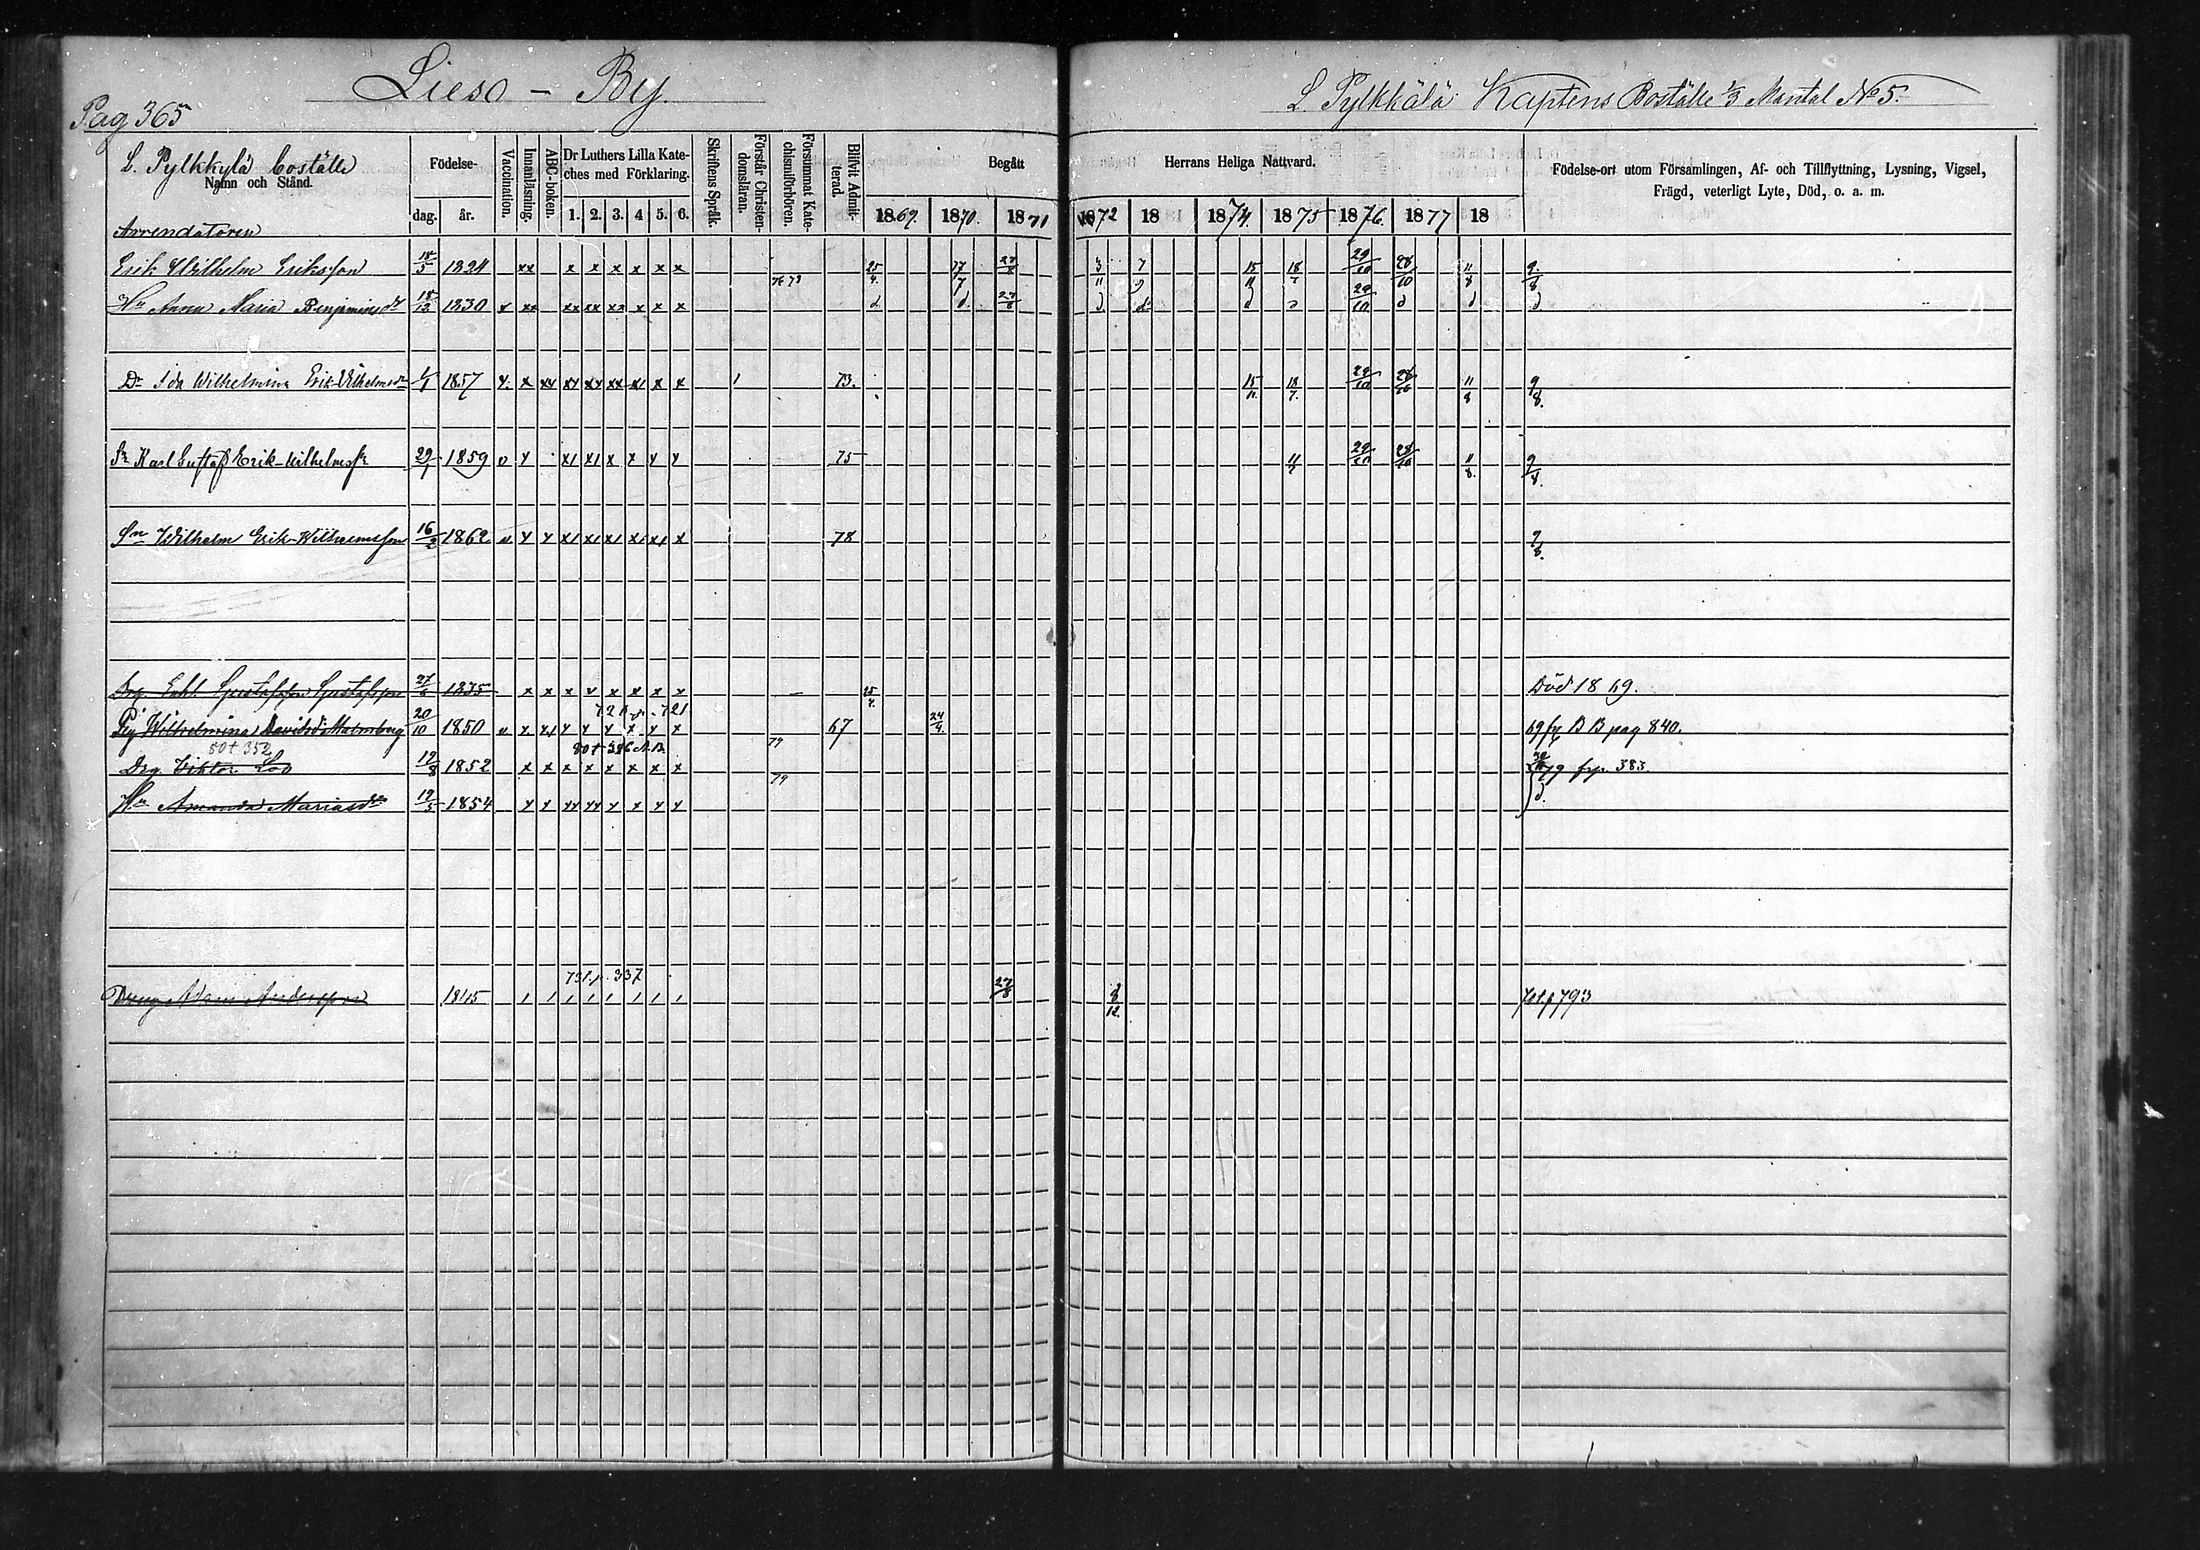 Lieso - By.
L Pylkkälä Kaptens Boställe 1/3 Mantal No 5.
Pag 365
L. Pylkkylä boställe
Namn och Stånd.
Födelse-
dag. år.
Vaccination.
Innanläsning.
ABC-boken.
Dr Luthers Lilla Kate-
ches med Förklaring.
1. 2. 3. 4 5. 6.
Skriftens Språk.
Förstår Christen-
domsläran.
Försummat Kate-
chismiförhören.
Blifvit Admit-
terad.
Begått Herrans Heliga Nattvard.
1869. 1870. 1871 1872 18 1874. 1875 1876. 1877 18
Födelse-ort utom Församlingen, Af- och Tillflyttning, Lysning, Vigsel,
Frägd, veterligt Lyte, Död, o. a. m.
Arrendatoren
Erik Wilhelm Eriksson 18/5 1824 xx x x x x x x 25/4. 17/7 27/8 3/11 15/11 18/7 29/10 28/10 11/8 9/8
76 78
Hu Anna Maria Benjaminsdr 18/12 1830 v xx xx xx xx x x x d d. 27/8 d do d d 29/10 d d d.
Dr Ida Wilhelmina Erik-Wilhelmsdr 1/1 1857 v. x xx xx xx xx xx x x 1 73. 15/11. 18/7. 29/10 28/10 11/8 9/8.
Sn Karl Gustaf Erik-Wilhelmss. 29/1 1859 v x x1 x1 x x x x 75 11/7 29/10 28/10 11/8. 9/8.
Sn Wilhelm Erik-Wilhelmsson 16/2 1862 v x x x1 x1 x1 x1 x1 x 78 9/8.
Drg. Gustafsson 1835 x x x x x x x x — 25/4. Död 1869.
Pig Wilhelmina Davidsdr Malmberg 20/10 1850 v x x1 x x x x x x 67 24/4. 69 fr B B pag 840.
80 + 352
Drg. Viktor 19/8 1852 x x x x x x x x 79 79 frp. 383.
Hu Amanda Mariasdr 19/5 1854 x x xx xx x x x x 79 d.
337
Dreng Adam Andersson 1845 27/8 793